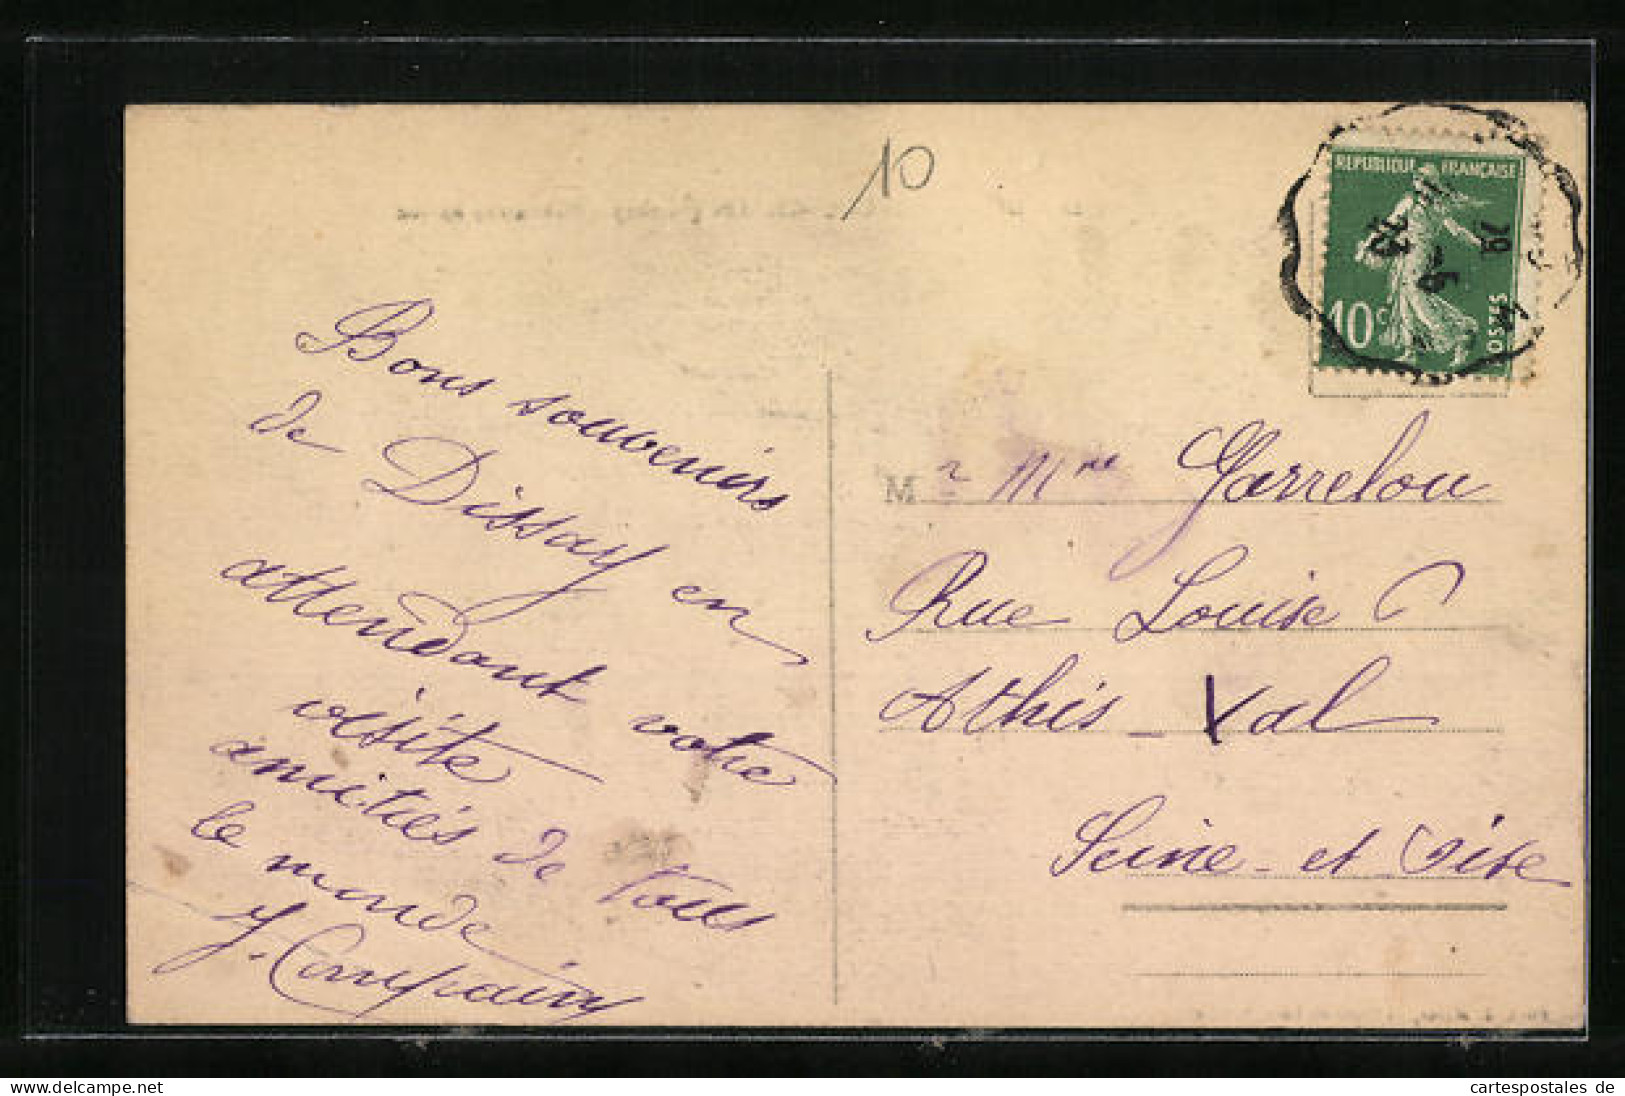 10
REPUBLIQUE FRANÇAISE
10c
POSTES
Bons souvenirs
de Dissay en
attendant votre
visite
amitiés de tous
le monde
Y. Compain
M r Mme Garrelou
Rue Louise
Athis - Val
Seine-et-Oise
cartespostales de